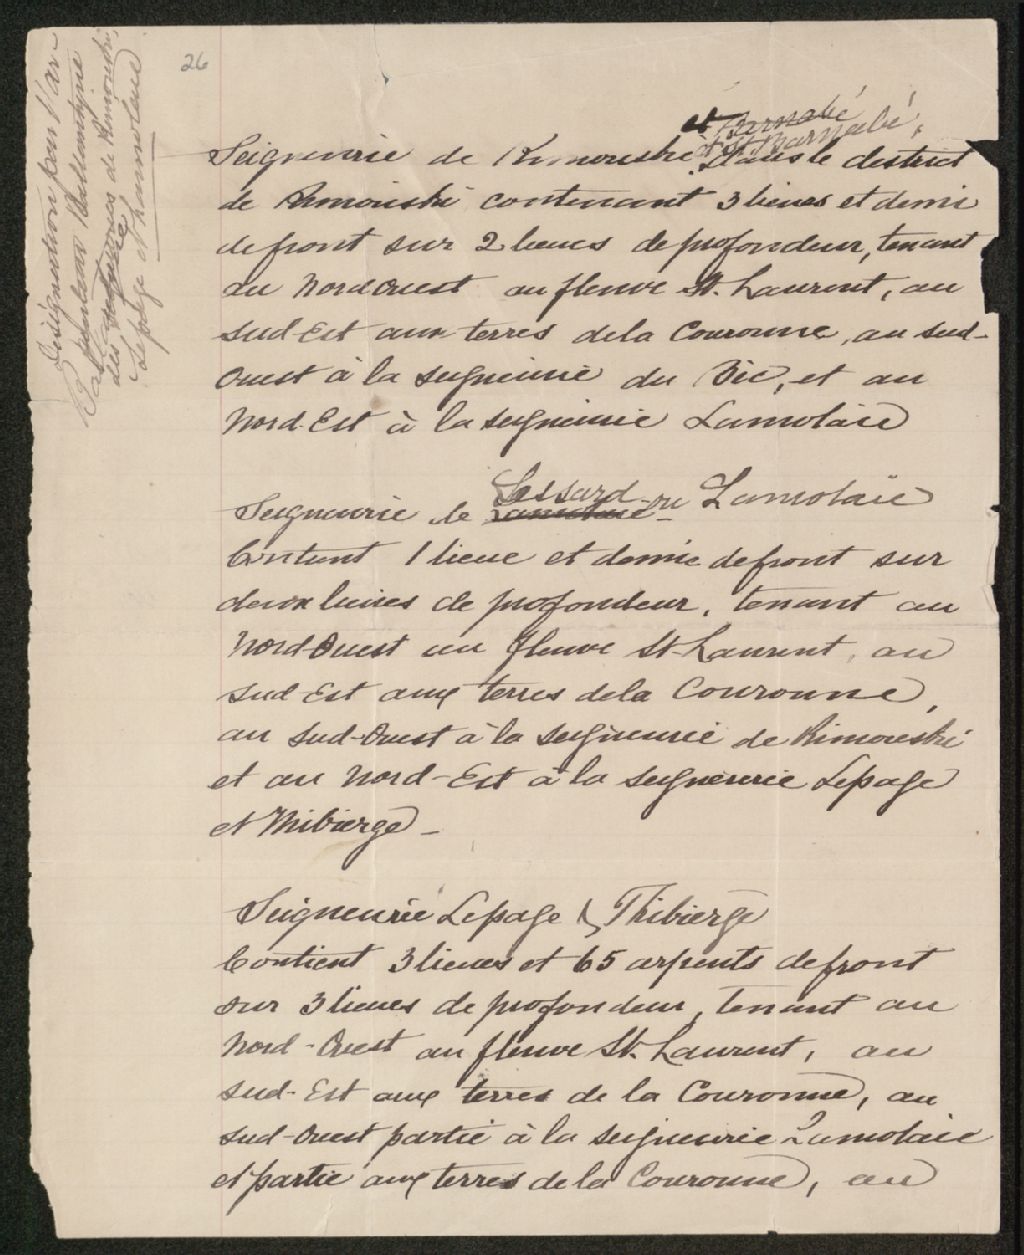 26
et Barnabé
et St Barnabé,
Seigneurie de Rimouski dans le district
de Rimouski contenant 3 lieues et demi
de front sur 2 lieues de profondeur, tenant
au Nord Ouest au fleuve St. Laurent, au
Sud Est aux terres de la Couronne, au Sud-
Ouest à la seigneurie du Bic, et au
Nord-Est à la seigneurie Lamolaie
Seigneurie le Lamolaie Lessard ou Lamolaie
Contient 1 lieue et demie de front sur
deux lieues de profondeur, tenant au
Nord Ouest au fleuve St-Laurent, au
Sud-Est aux terres de la Couronne,
au Sud-Ouest à la seigneurie de Rimouski
et au Nord-Est à la seigneurie Lepage
et Thibierge -
Seigneurie Lepage & Thibierge
Contient 3 lieues et 65 arpents de front
sur 3 lieues de profondeur, tenant au
Nord-Ouest au fleuve St. Laurent, au
Sud-Est aux terres de la Couronne, au
Sud-Ouest partie à la seigneurie Lamolaie
et partie aux terres de la Couronne, au
Désignation pour l'ar-
des seigneuries de Rimouski,
Lepage et